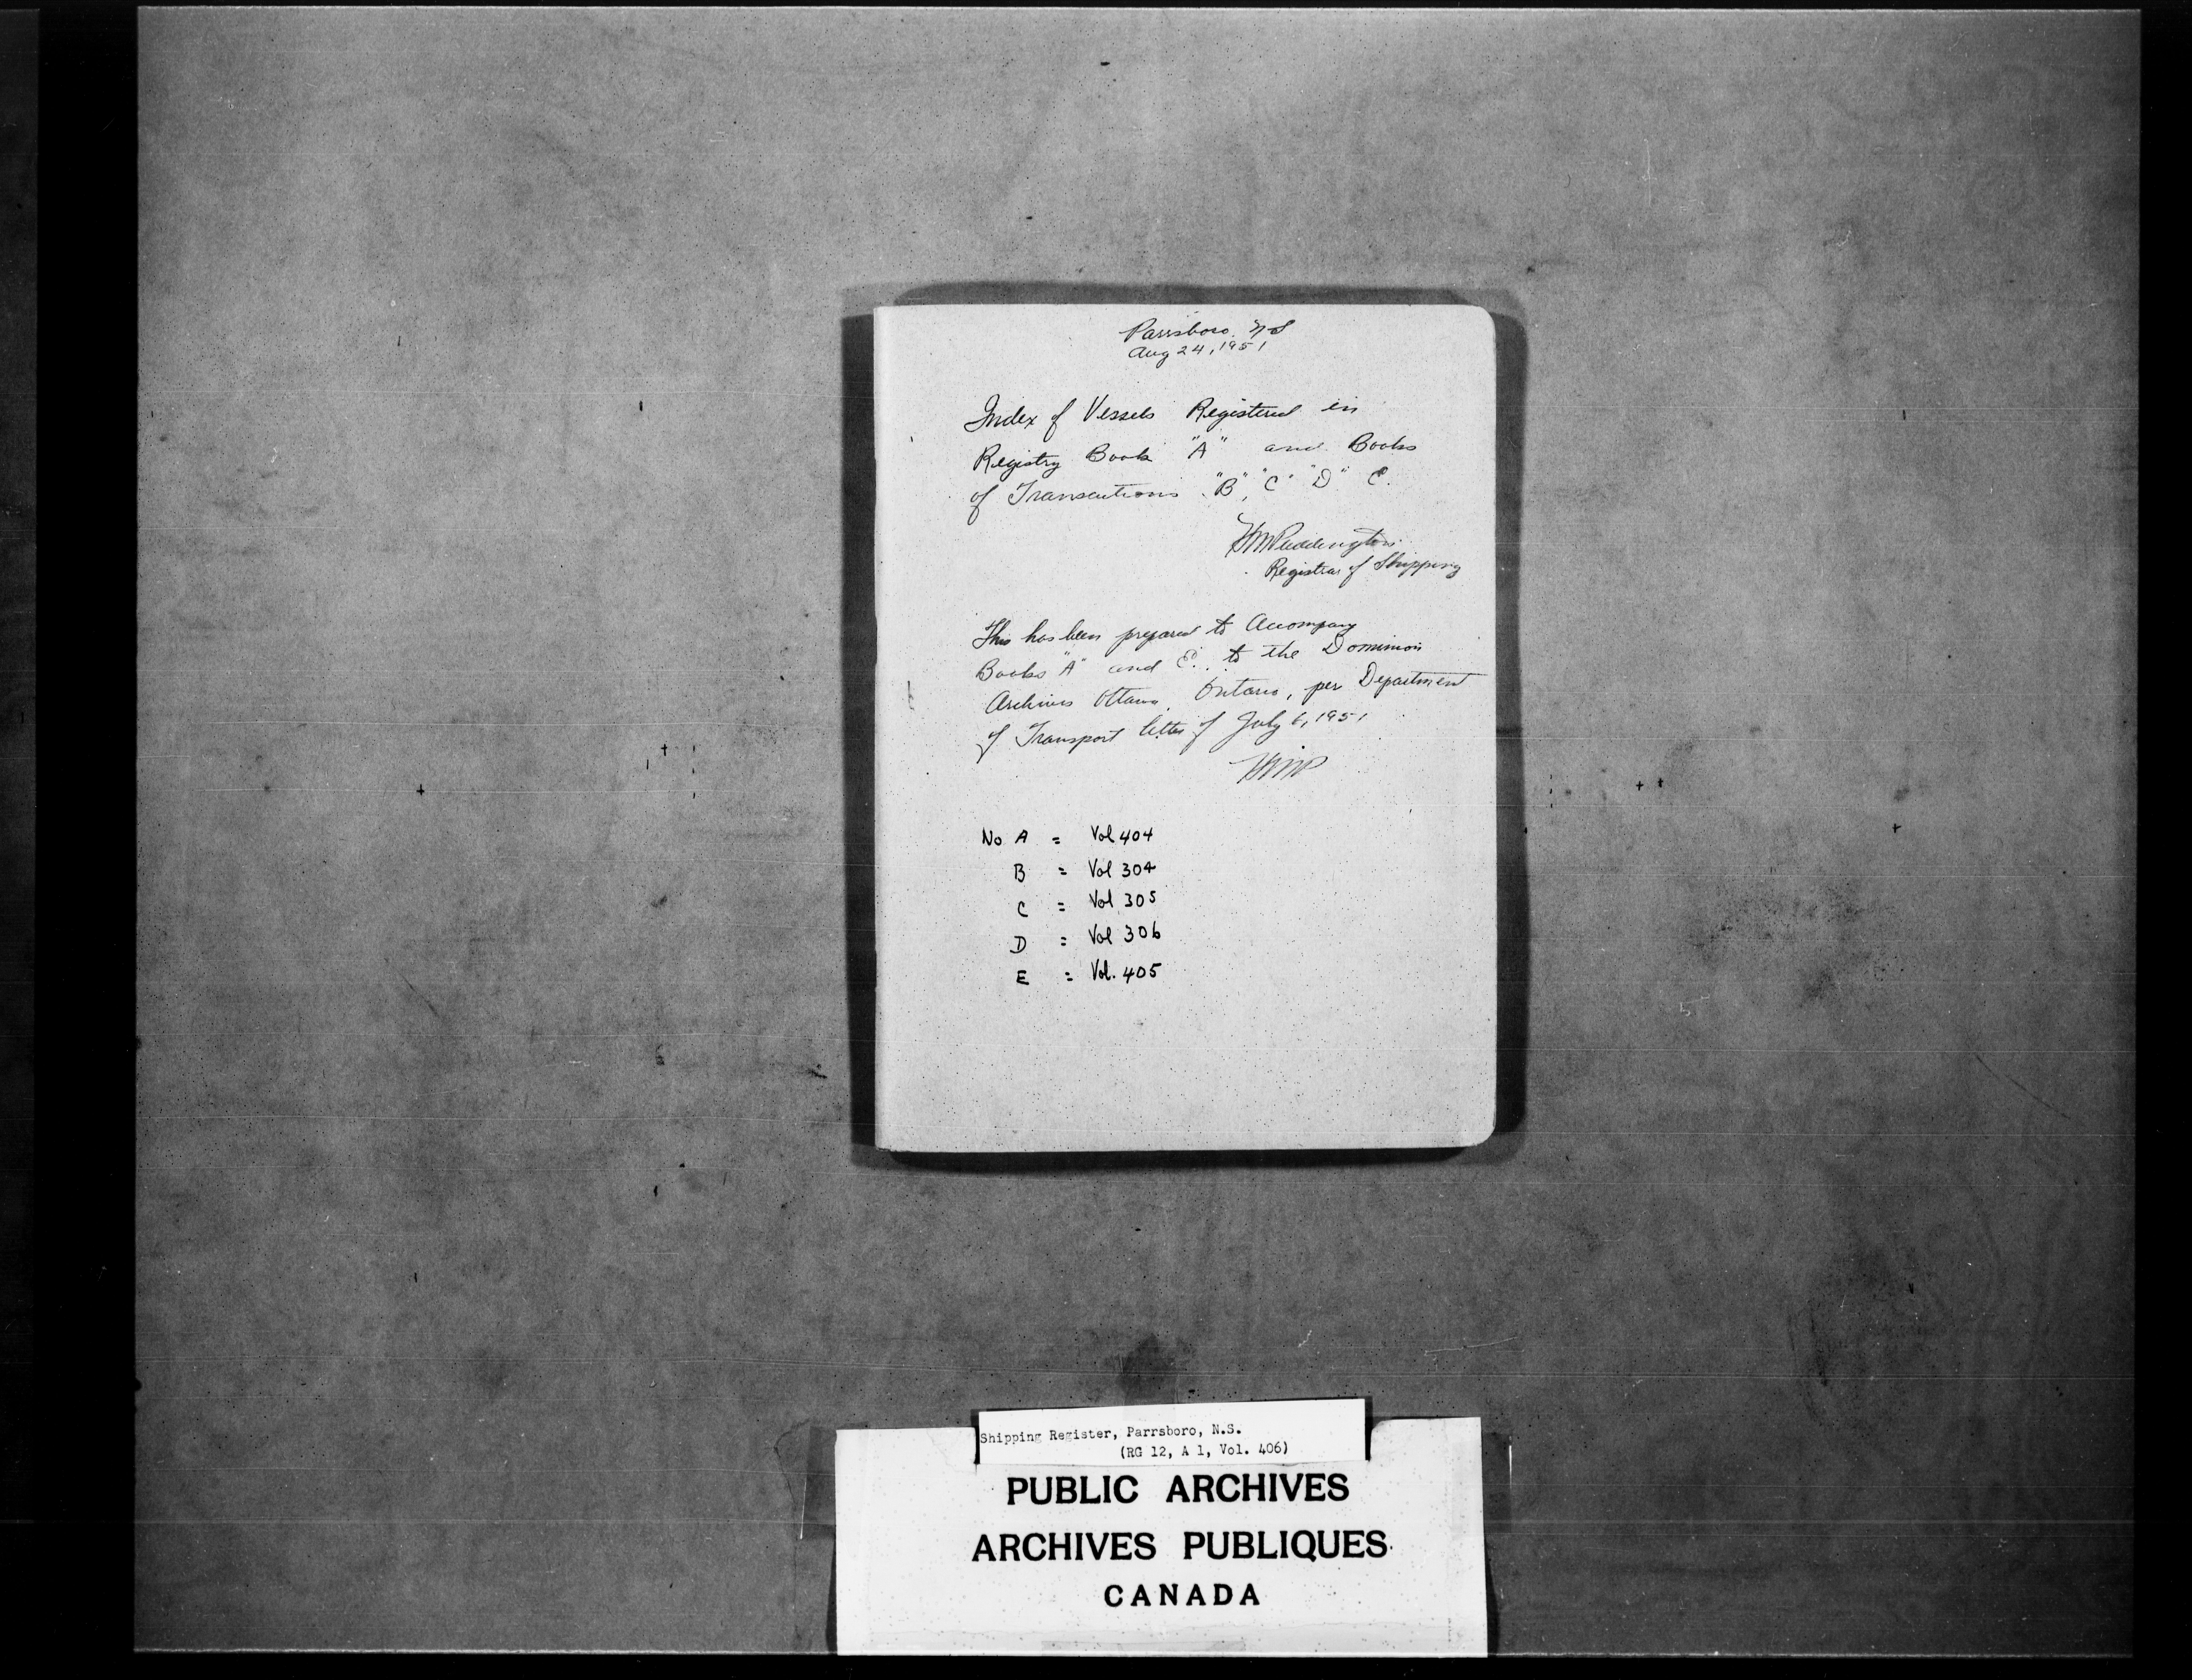 Parrsboro. N S
Aug 24, 1951
Index of Vessels Registered in
Registry Book "A" and Books
of Transactions "B", "C" "D" E.
Registrar of Shipping
This has been prepared to Accompany
Books "A" and E.. to the Dominion
Archives Ottawa, Ontario, per Department
of Transport letter of July 6, 1951
HMP
No A = Vol 404
B = Vol 304
C = Vol 305
D = Vol 306
E = Vol. 405
Shipping Register, Parrsboro, N.S.
(RG 12, A 1, Vol. 406)
PUBLIC ARCHIVES
ARCHIVES PUBLIQUES
CANADA